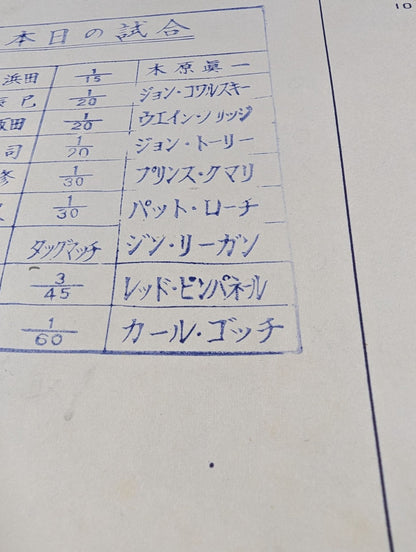 本日の試合
浜田 1/15 木原眞一
辰巳 1/20 ジョン・コワルスキー
飯田 1/20 ウエイン・ブリッジ
司 1/20 ジョン・トーリー
修 1/30 プリンス・クマリ
1/30 パット・ローチ
タッグマッチ ジン・リーガン
3/45 レッド・ピンパネール
1/60 カール・ゴッチ
10